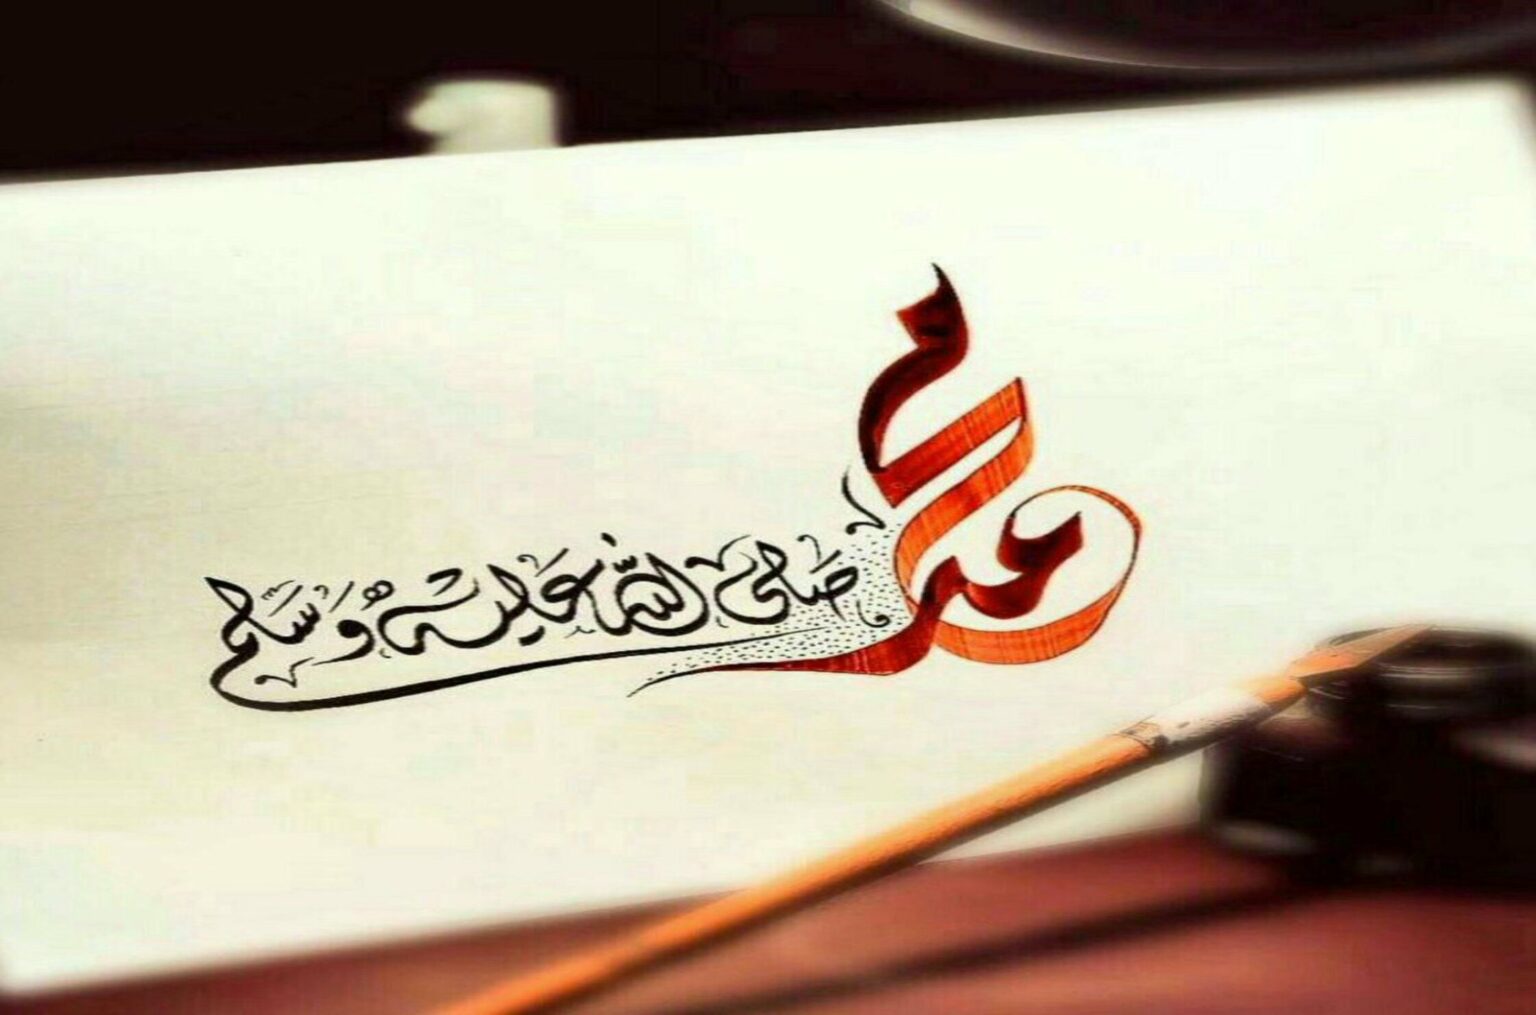 محمد صَلَّى اللَّه عَلَيْهِ وَسَلَّم